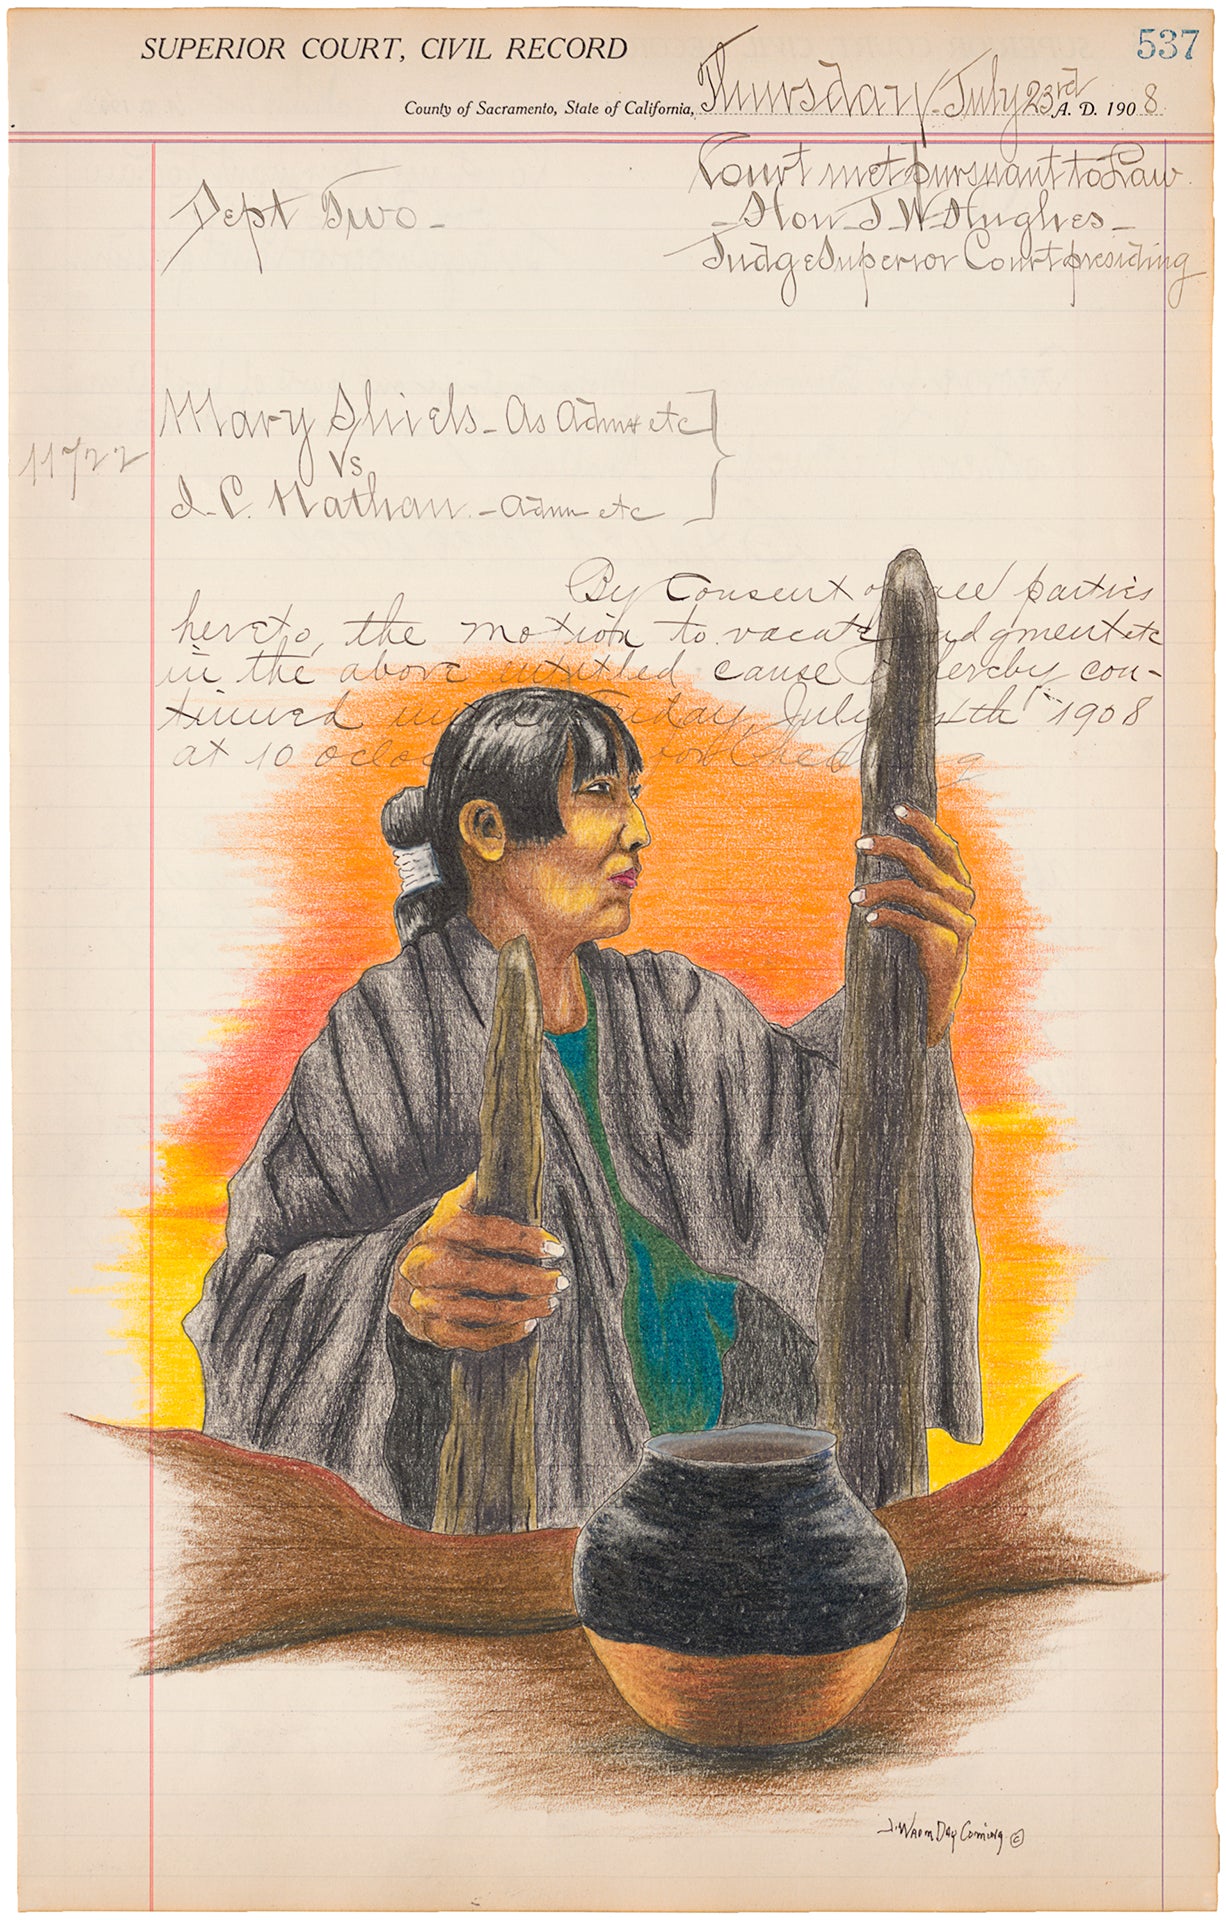 537
SUPERIOR COURT, CIVIL RECORD
County of Sacramento, State of California, Thursday - July 23rd A. D. 1908
Court met pursuant to Law
Dept Two -
- Hon J W Hughes -
Judge Superior Court presiding
Mary Shiels - As Admx etc
11722
vs
I. C. Nathan - Admr etc
By Consent all parties
hereto, the motion to vacate judgment etc
in the above entitled cause hereby con-
tinued Friday July 1908
at 10
J. Warm Day Coming ©